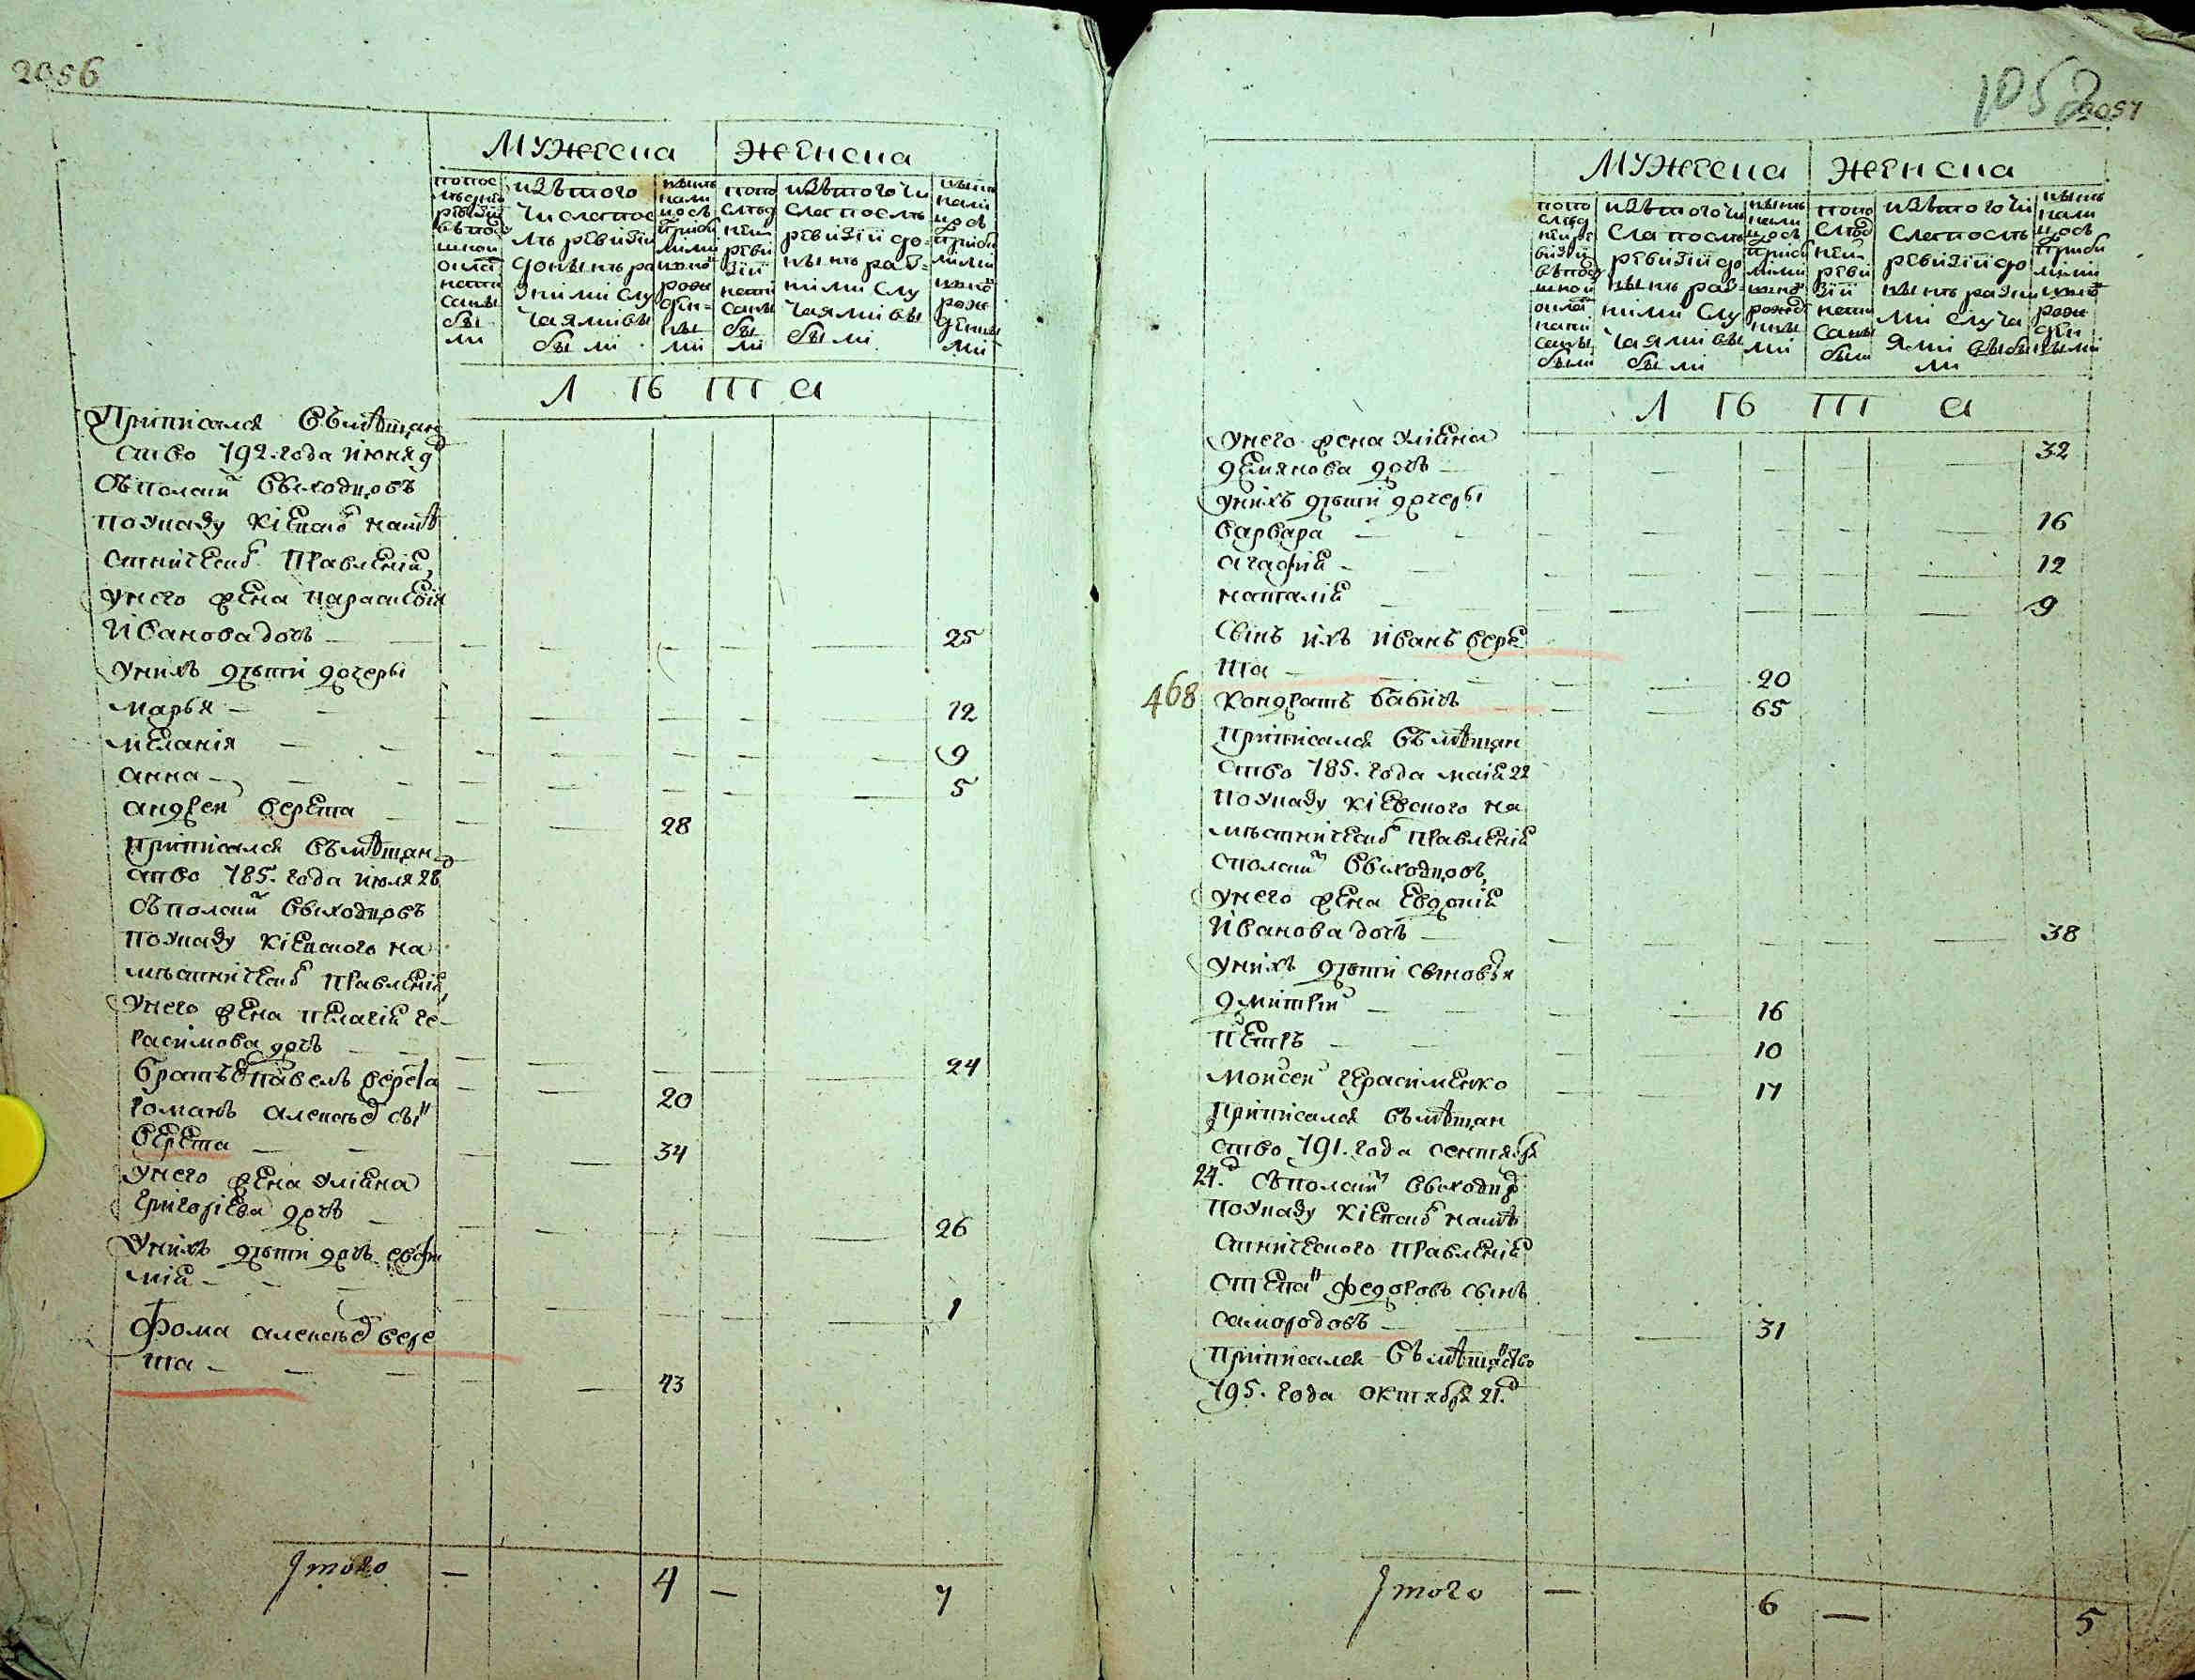 2056
мужеска женска
попос
лѣдней
ревизіи
въ подушной
окладъ
написаны
были
изъ того
числа пос
лѣ ревизіи
до нынѣ ра
зними слу
чаями вы
были
нынѣ
нали
цо съ
прибы
лыми
и новорожден
ными
попо
слѣд
ней
реви
зіи
напи
саны
были
изъ того чи
сла послѣ
ревизіи до
нынѣ раз
ними слу
чаями вы
были
нынѣ
нали
цо съ
прибы
лыми
и ново
рож
денны
ми
лѣта
Приписался въ мѣщан
ство 792. года июня 9д
съ полски выходцовъ
по указу кіевско намѣ
стническо правленія,
у него жена параскевія
Иванова дочь 25
у нихъ дѣти дочеры
марья 12
меланія 9
анна 5
андрей верета 28
приписался въ мѣщан
ство 785. года июля 28д
съ полски выходцовъ
по указу кіевского на
мѣстническо правленія,
у него жена пелагія ге
расимова дочь 24
братъ его павелъ верета 20
романъ алексѣе сы
верета 34
у него жена уліяна
григоріева дочь 26
у нихъ дѣти дочь евфи
мія 1
фома алексѣе вере
та 43
Итого 4 7
1052 2057
мужеска женска
попо
слѣд
ней ре
визіи
въ поду
шной
окла
напи
саны
были
изъ того чи
сла послѣ
ревизіи до
нынѣ раз
ними слу
чаями вы
были
нынѣ
нали
цо съ
прибы
лыми
и ново
рожден
ны
ми
попо
слѣд
ней
реви
зіи
напи
саны
были
изъ того чи
сла послѣ
ревизіи до
нынѣ разни
ми случа
ями выбы
ли
нынѣ
нали
цо съ
прибы
лыми
и ново
рож
ден
ными
лѣта
у него жена уліяна
демянова дочь 32
у нихъ дѣти дочеры
варвара 16
агафія 12
наталія 9
сынъ ихъ иванъ вере
та 20
468 кондратъ бабичъ 65
приписался въ мѣщан
ство 785. года маія 22
по указу кіевского на
мѣстническо правленія
с полски выходцовъ,
у него жена евдокія
Иванова дочь 38
у нихъ дѣти сыновья
дмитрій 16
петръ 10
моисей герасименко 17
приписался въ мѣщан
ство 791. года сентября
24.д съ полски выходцо
по указу кіевско намѣ
стнического правленія
степа федоровъ сынъ
самородовъ 31
приписался въ мѣщанство
795. года октября 21.д
Итого 6 5